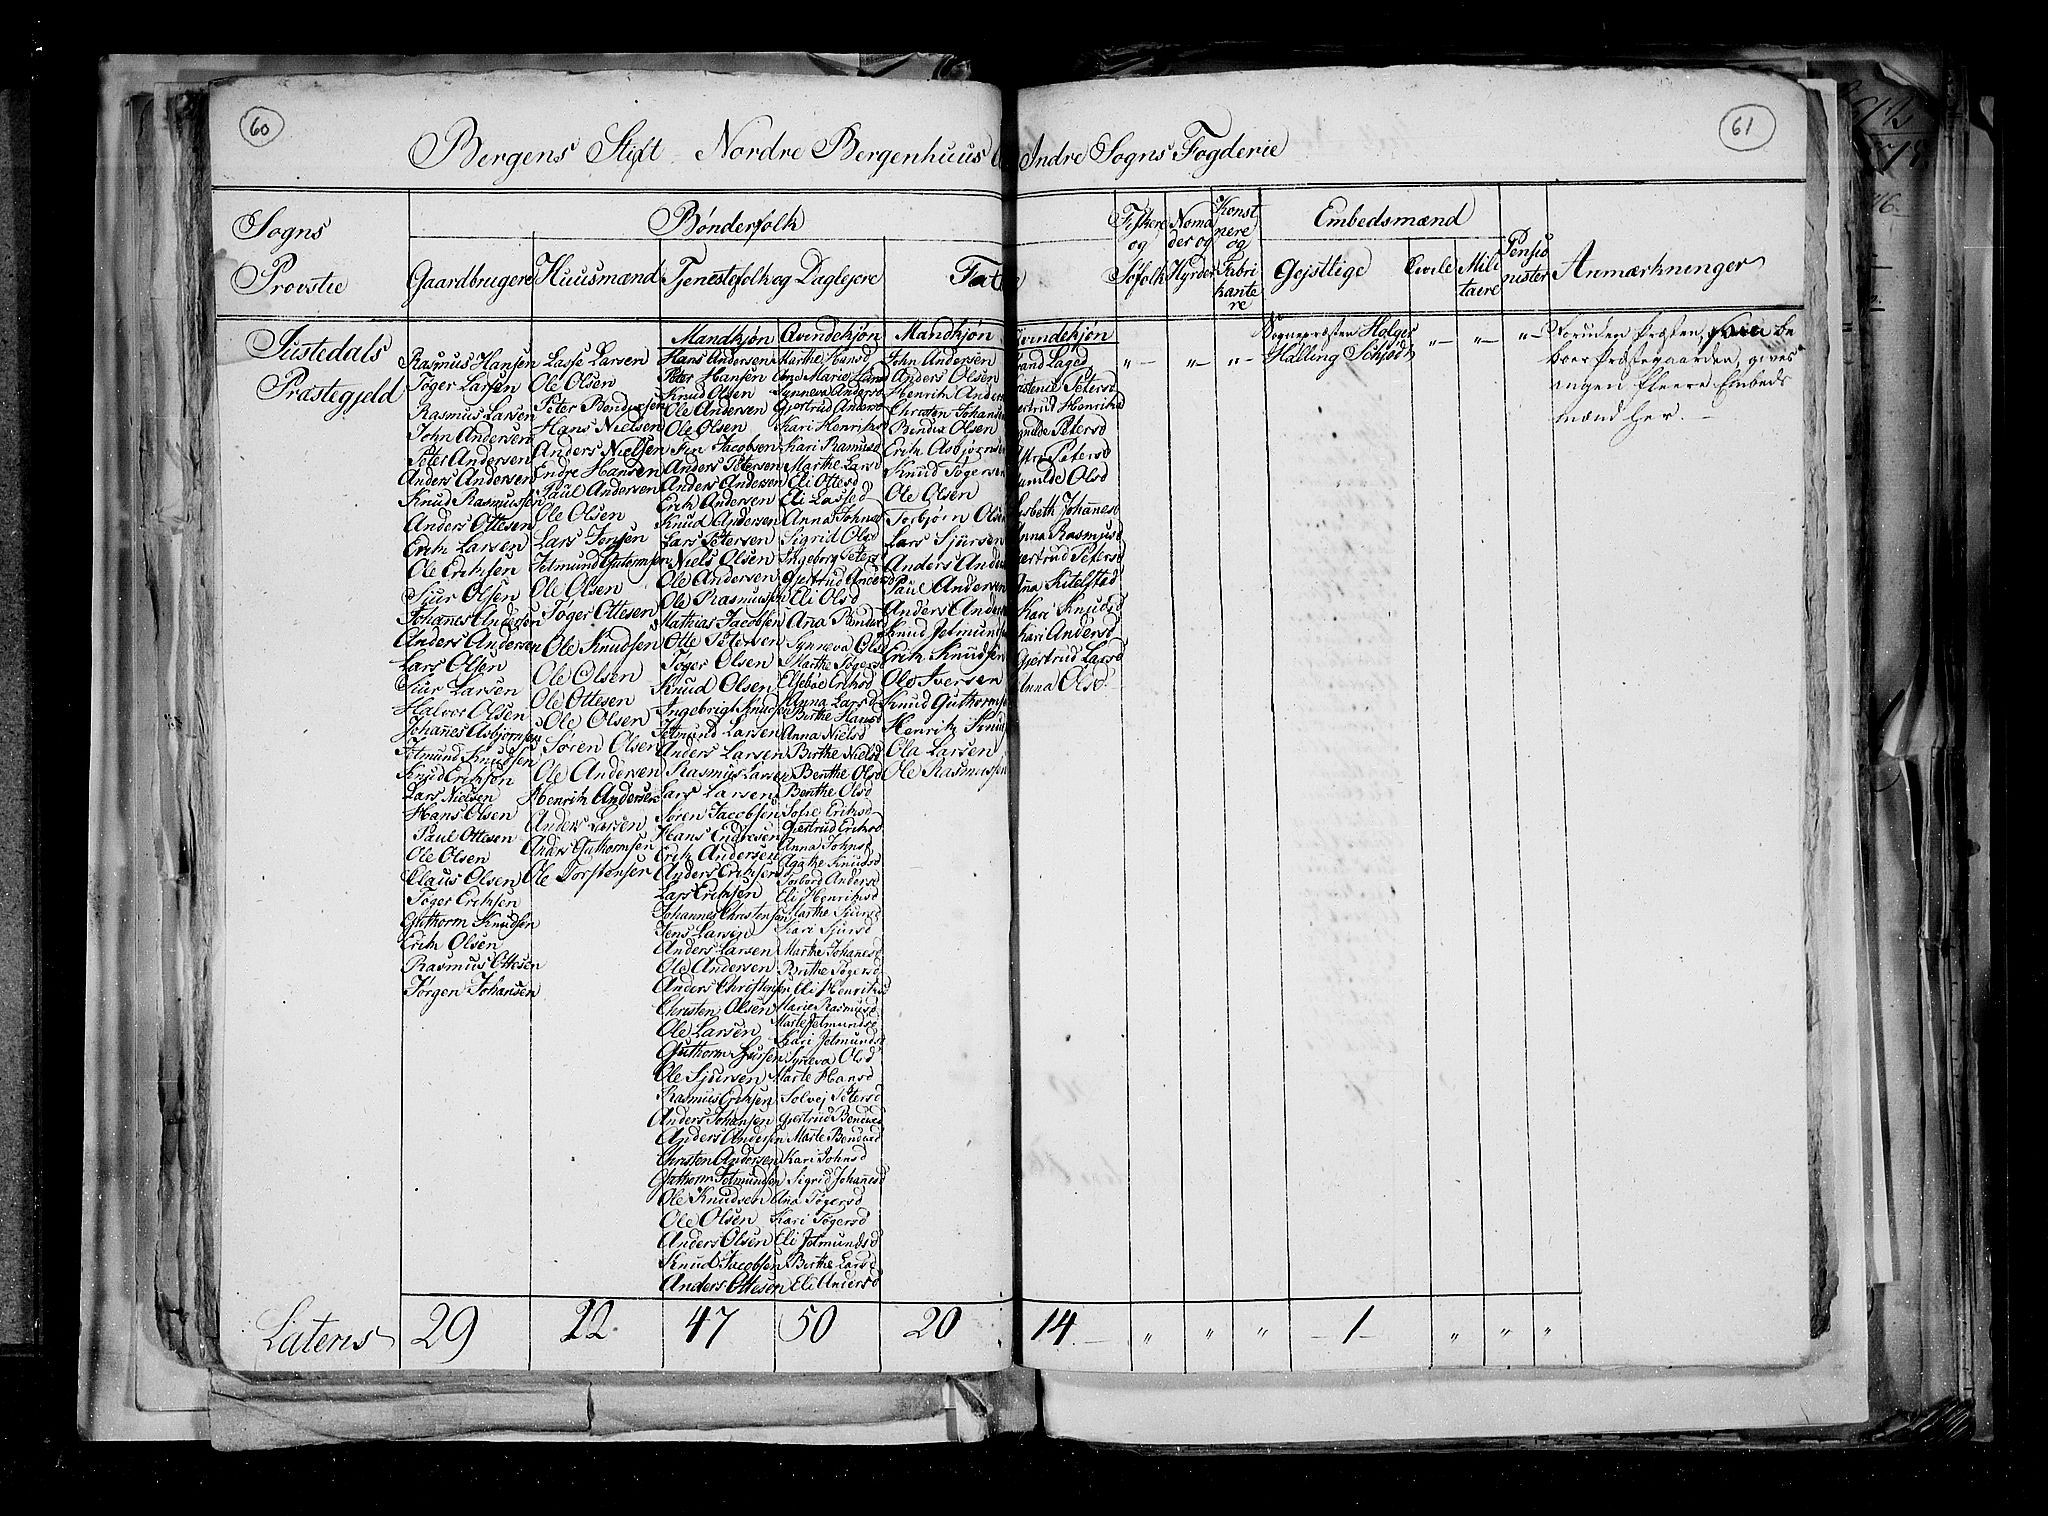 60
61
Bergens Stift Nordre Bergenhuus Indre Sogns Fogderie
Sogns
Provstie
Bønderfolk
Gaardbrugere
Huusmænd
Tjenestefolk og Daglejere
Fatt
Fiskere
og
Søfolk
Noma
der og
Hyrder
Konst
nere
og
Fabri
kante
re
Embedsmænd
Gejstlige
Civile
Mili
taere
Pensio
nister
Anmærkninger
Justedals
Præstegjeld
Rasmus Hansen
Tøger Larsen
Rasmus Larsen
John Andersen
Peter Andersen
Anders Andersen
Knud Rasmussen
Anders Ottesen
Erik Larsen
Ole Eriksen
Siur Olsen
Johanes Andersen
Anders Andersen
Lars Olsen
Siur Larsen
Halvor Olsen
Johañes Asbjornsen
Jetmund Knudsen
Knud Eriksen
Lars Nielsen
Hans Olsen
Paul Ottesen
Ole Olsen
Claus Olsen
Tøger Eriksen
Guthorm Knudsen
Erik Olsen
Rasmus Ottesen
Jørgen Johansen
Lasse Larsen
Ole Olsen
Peter Bendixsen
Hans Nielsen
Anders Nielsen
Endre Hansen
Paul Andersen
Ole Olsen
Lars Jensen
Jetmund Gutormsen
Ole Olsen
Tøger Ottesen
Ole Knudsen
Ole Olsen
Ole Ottesen
Ole Olsen
Søren Olsen
Ole Andersen
Henrik Andersen
Anders Larsen
Anders Guthormsen
Ole Torstensen
Mandkjøn
Hans Andersen
Peter Hansen
Knud Olsen
Ole Andersen
Ole Olsen
Jacobsen
Anders Petersen
Anders Andersen
Erik Andersen
Knud Andersen
Lars Petersen
Niels Olsen
Ole Andersen
Ole Rasmussen
Mathias Jacobsen
Otte Petersen
Tøger Olsen
Knud Olsen
Ingebrigt Knudsen
Jetmund Larsen
Anders Larsen
Rasmus Larsen
Lars Larsen
Søren Jacobsen
Hans Endresen
Erik Andersen
Anders Eriksen
Lars Eriksen
Johannes Christensen
Jens Larsen
Anders Larsen
Ole Andersen
Anders Christensen
Christen Olsen
Ole Larsen
Guthorm Sjursen
Ole Sjursen
Rasmus Eriksen
Anders Johansen
Anders Andersen
Christen Andersen
Guthorm Jetmundsen
Ole Knudsen
Ole Olsen
Anders Olsen
Knud Jacobsen
Anders Ottesen
Qvindekjøn
Marthe Hansd
Ane Marie Hansd
Synneva Andersd
Gjertrud Andersd
Kari Henriksd
Kari Rasmusd
Marthe Larsd
Eli Ottesd
Eli Lassed
Anna Johnsd
Sigrid Olsd
Ingeborg Petersd
Gjertrud Andersd
Eli Olsd
Ana Bendixd
Synneva Olsd
Marthe Tøgersd
Elsebøe Eriksd
Anna Larsd
Berthe Hansd
Anna Nielsd
Birthe Nielsd
Benthe Olsd
Benthe Olsd
Sofie Eriksd
Gjertrud Eriksd
Anna Johnsd
Agathe Knudsd
Torbord Andersd
Eli Henriksd
Marthe Siursd
Kari Sjursd
Marthe Johanesd
Brithe Tøgersd
Eli Henriksd
Marie Rasmusd
Marte Jetmundsd
Kari Jetmundsd
Synneva Olsd
Marte Hansd
Solvej Petersd
Gjertrud Bendixd
Marte Bendixd
Kari Johnsd
Sigrid Johañesd
Ana Tøgersd
Kari Tøgersd
Eli Jetmundsd
Birthe Larsd
Eli Andersd
Mandkjøn
John Andersen
Anders Olsen
Henrik Anders
Christen Johans
Bendix Olsen
Erik Asbjørnsen
Knud Tøgersen
Ole Olsen
Torbjørn Olsen
Lars Sjursen
Anders Ande
Paul Andersen
Anders Ander
Knud Jetmunds
Erik Knudsen
Ole Iversen
Knud Guthorms
Henrik Knud
Ola Larsen
Ole Rasmussen
vindekjøn
Laged
Petersd
ertrud Henriksd
nilde Petersd
Petersd
unilde Olsd
isbeth Johanesd
nna Rasmusd
jertrud Petersd
na Kitelstad
Kari Knudsd
Kari Andersd
Gjertrud Larsd
Anna Olsd
" " "
Sognepræsten Holger
Halling Schiødt
" " "
Foruden Præsten, som be
boer Præstegaarden, gives
ingen fleere Embeds
mænd her.
Lateris
29 22. 47 50 20 14 " " " 1 " " "